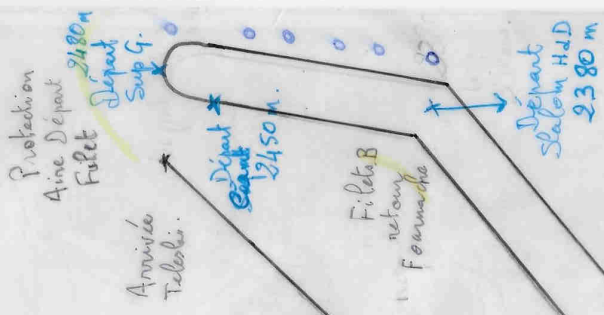 Protection
Aire Départ
Filet
2480 m
Départ
Sup G.
Arrivée
Départ
Géant
2450 m.
Filets B
retour
Départ
Slalom H&D
2380 m